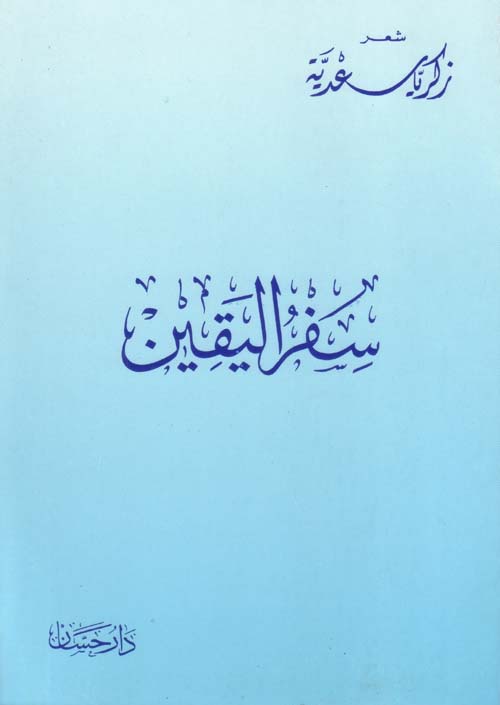 شعر
زكريا سعدية
سِفْرُ اليَقِينْ
دَار حَسَّان